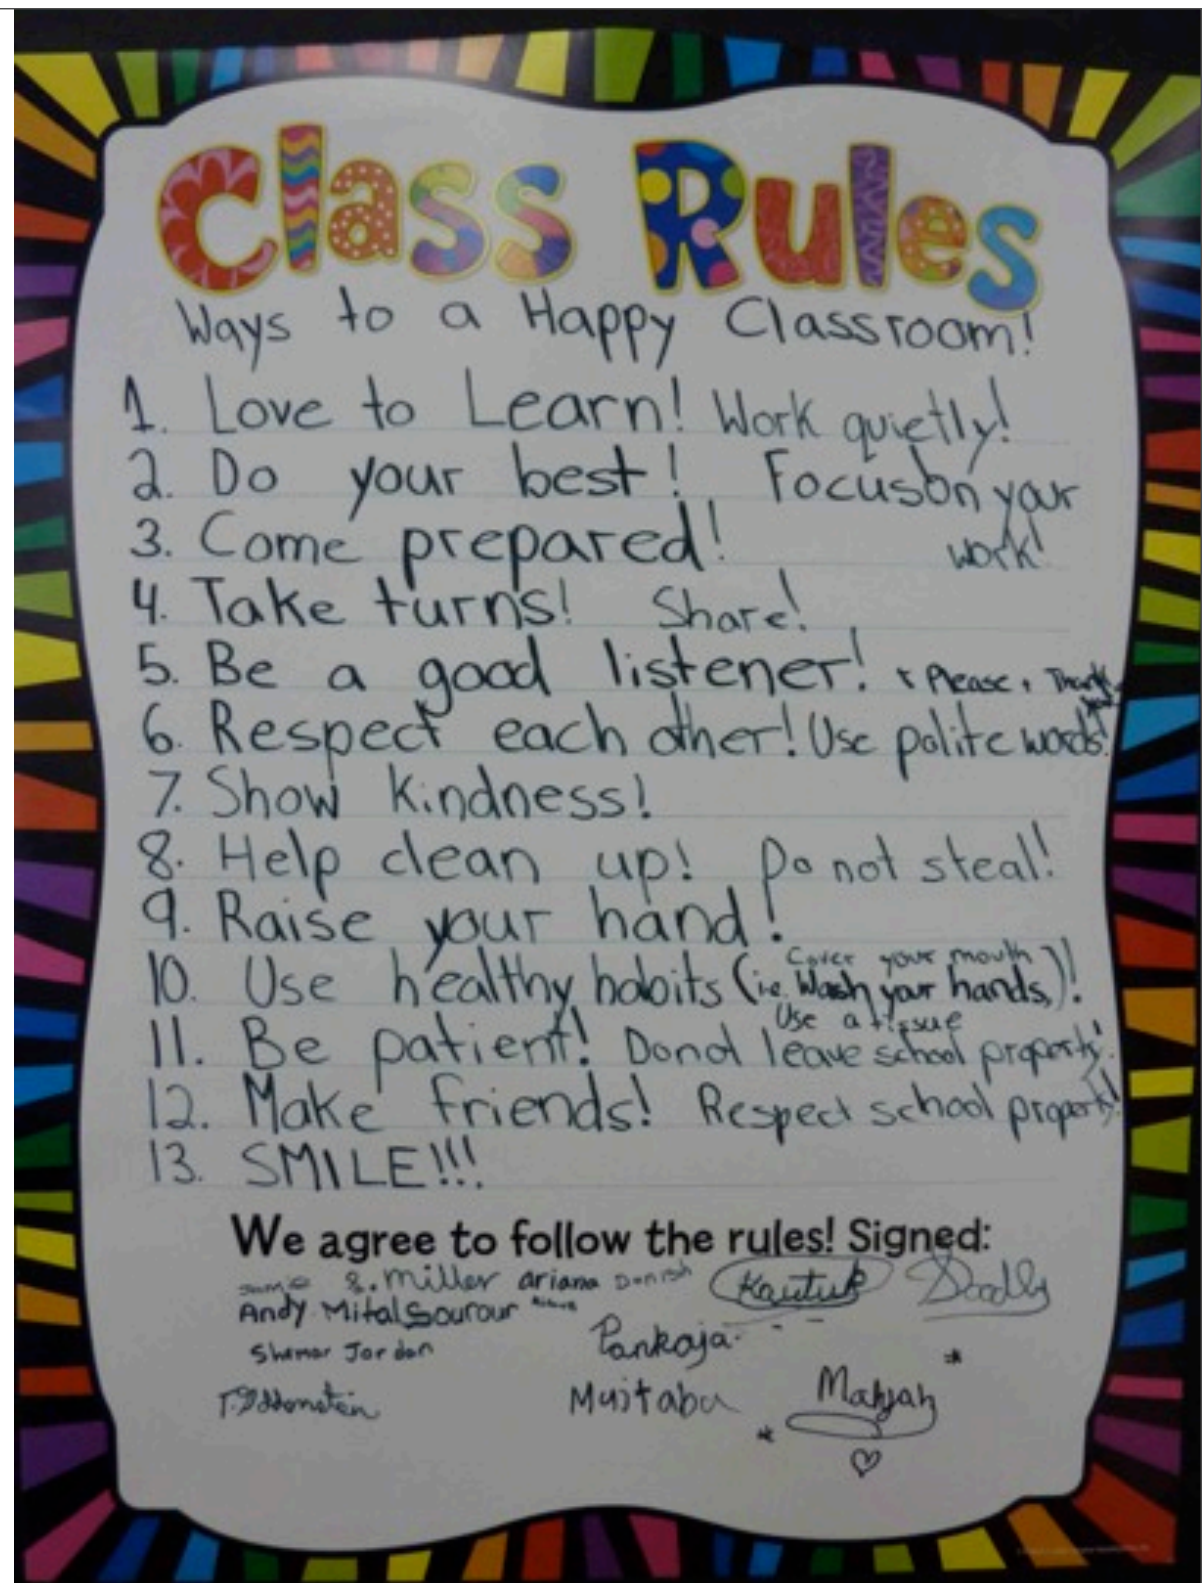 Class Rules
Ways to a Happy Classroom!
1. Love to Learn! Work quietly!
2. Do your best! Focus on your
3. Come prepared! work!
4. Take turns! Share!
5. Be a good listener! + Please + Thank you!
6. Respect each other! Use polite words!
7. Show kindness!
8. Help clean up! Do not steal!
9. Raise your hand!
Cover your mouth
10. Use healthy habits (i.e. Wash your hands,)!
Use a tissue
11. Be patient! Do not leave school property!
12. Make friends! Respect school property!
13. SMILE!!!
We agree to follow the rules! Signed:
S. Miller ariana Danish Kautuk
Andy Mital Sourour
Shamar Jordan Pankaja
Mujtaba Mahjah